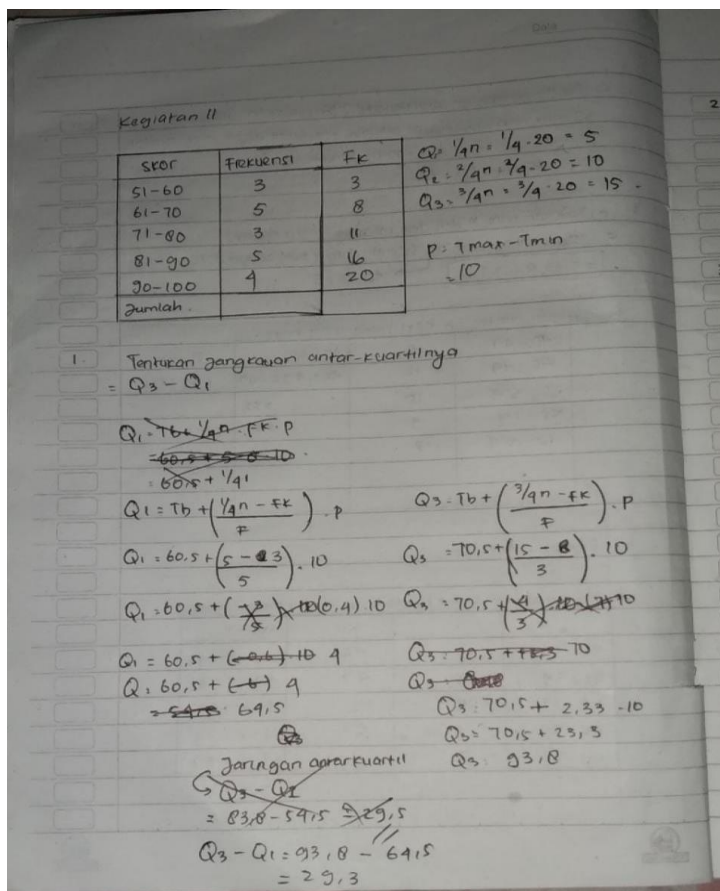 Date
Kegiatan II
2
Skor Frekuensi Fk
51-60 3 3
61-70 5 8
71-80 3 11
81-90 5 16
90-100 4 20
Jumlah.
Q= 1/4n = 1/4 . 20 = 5
Q2 = 2/4n = 2/4 . 20 = 10
Q3 = 3/4n = 3/4 . 20 = 15
P = Tmax - Tmin
= 10
1. Tentukan Jangkauan antar-kuartilnya
= Q3 - Q1
Q1 = Tb + 1/4n - fk . P
= 60,5 + 5 - 10
= 60,5 + 1/41
Q1 = Tb + (1/4n - fk / F) . P
Q1 = 60,5 + (5 - 3 / 5) . 10
Q1 = 60,5 + (0,4) 10
Q1 = 60,5 + (-0,6) 10 4
Q1 = 60,5 + (-6) 4
= 54,5 64,5
Q3 = Tb + (3/4n - fk / F) . P
Q3 = 70,5 + (15 - 8 / 3) . 10
Q3 = 70,5 + (4 / 3) 10
Q3 = 70,5 + 70
Q3 =
Q3 = 70,5 + 2,33 . 10
Q3 = 70,5 + 23,3
Q3 = 93,8
Q3
Jaringan antarkuartil
Q3 - Q1
= 83,8 - 54,5 = 29,5
Q3 - Q1 = 93,8 - 64,5
= 29,3